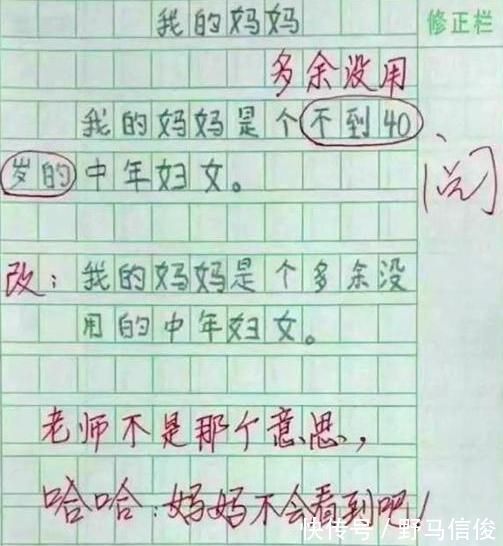 我的妈妈
修正栏
多余没用
我的妈妈是个不到40
岁的中年妇女。
阅
改：我的妈妈是个多余没
用的中年妇女。
老师不是那个意思，
哈哈：妈妈不会看到吧！
快传号/野马信俊